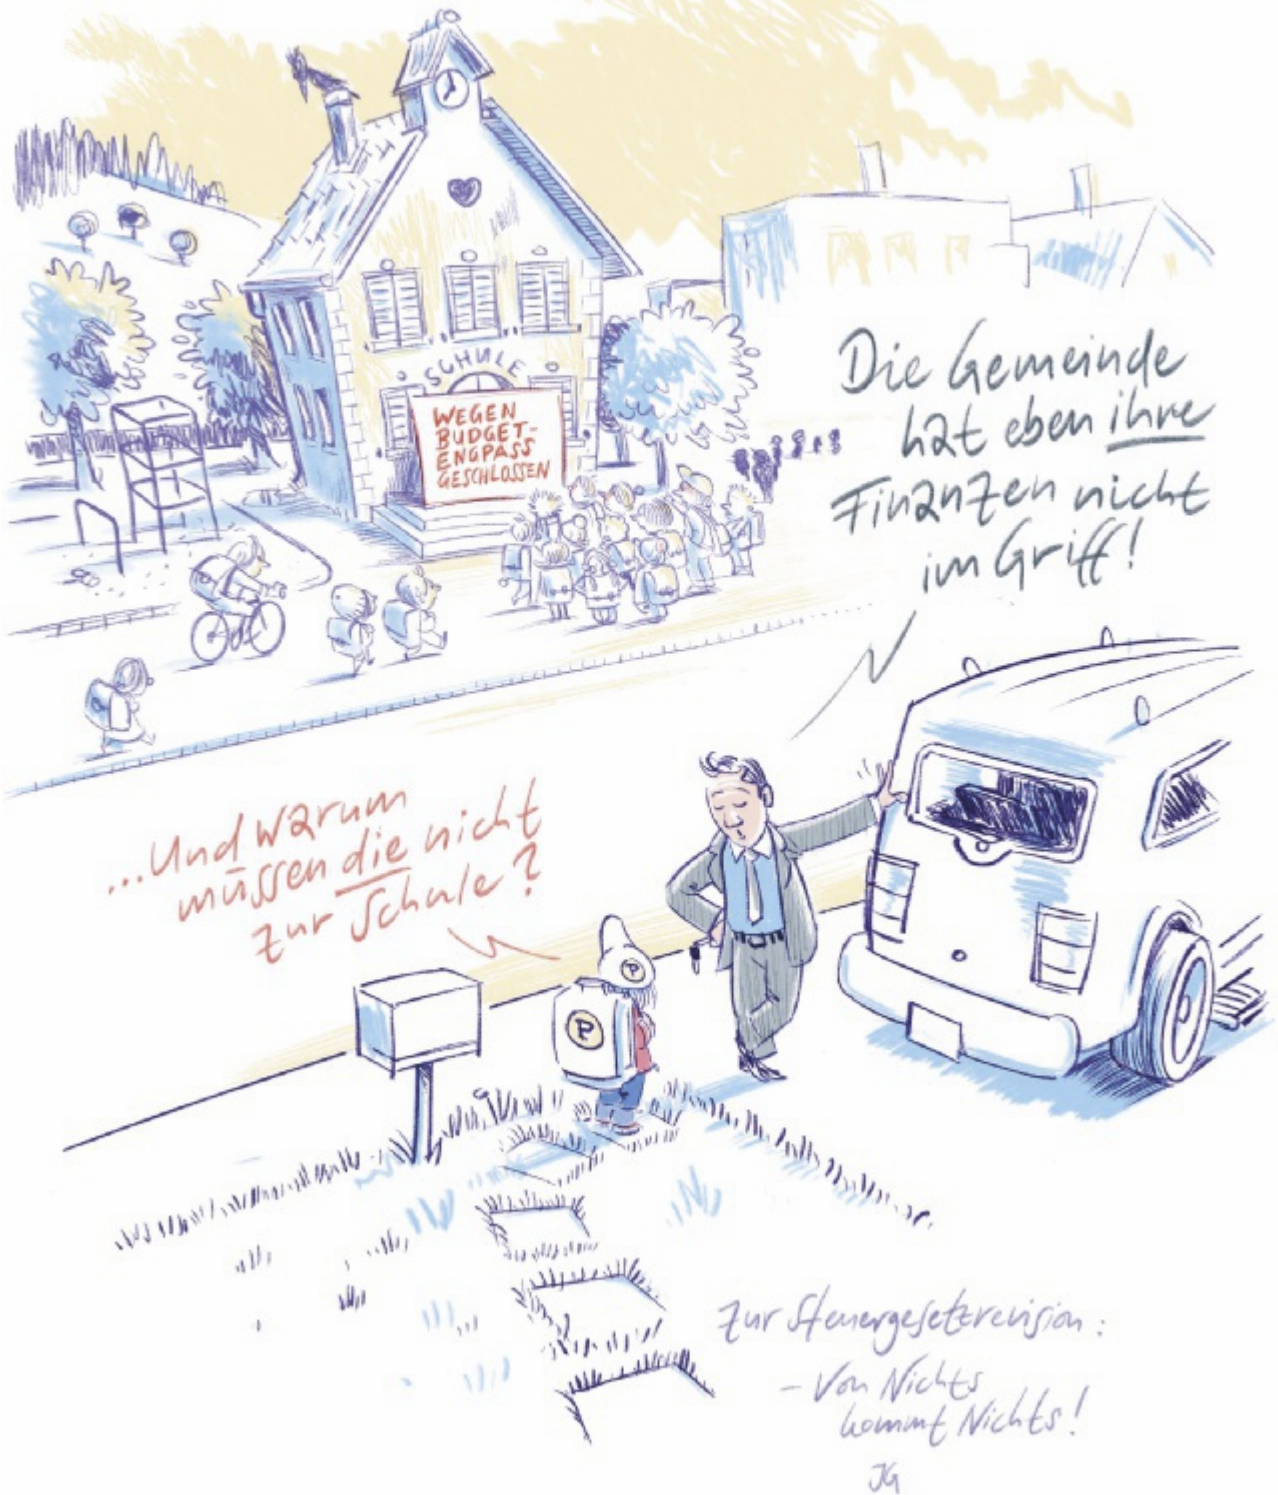 SCHULE
WEGEN
BUDGET-
ENGPASS
GESCHLOSSEN
Die Gemeinde
hat eben ihre
Finanzen nicht
im Griff!
...Und warum
müssen die nicht
zur Schule?
P
P
Zur Steuergesetzrevision:
- Von Nichts
kommt Nichts!
JG